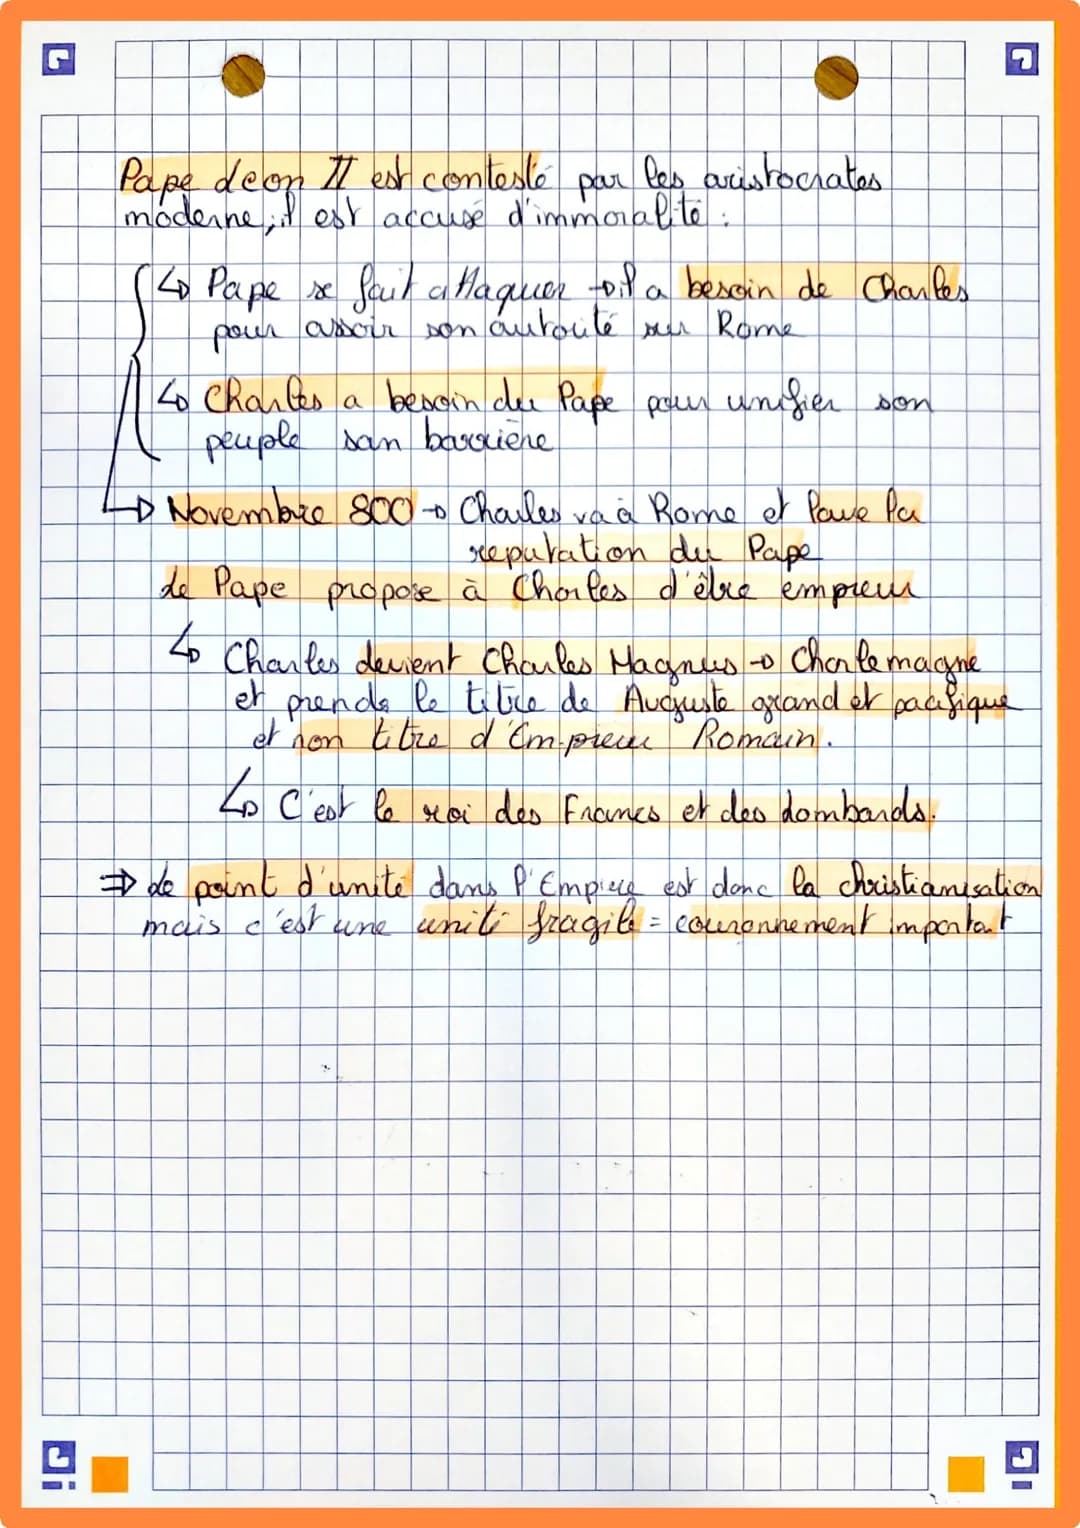 Pape Leon II est contesté par les aristocrates
moderne, il est accusé d'immoralité :
↳ Pape se fait attaquer → il a besoin de Charles
pour assoir son autorité sur Rome
↳ Charles a besoin du Pape pour unifier son
peuple san barrière
→ Novembre 800 → Charles va à Rome et lave la
reputation du Pape
Le Pape propose à Charles d'être empreur
↳ Charles devient Charles Magnus → Charlemagne
et prends le titre de Auguste grand et pacifique
et non titre d'Empreur Romain.
↳ C'est le roi des Francs et des Lombards.
⇒ Le point d'unité dans l'Empire est donc la christianisation
mais c'est une unité fragile = couronnement important